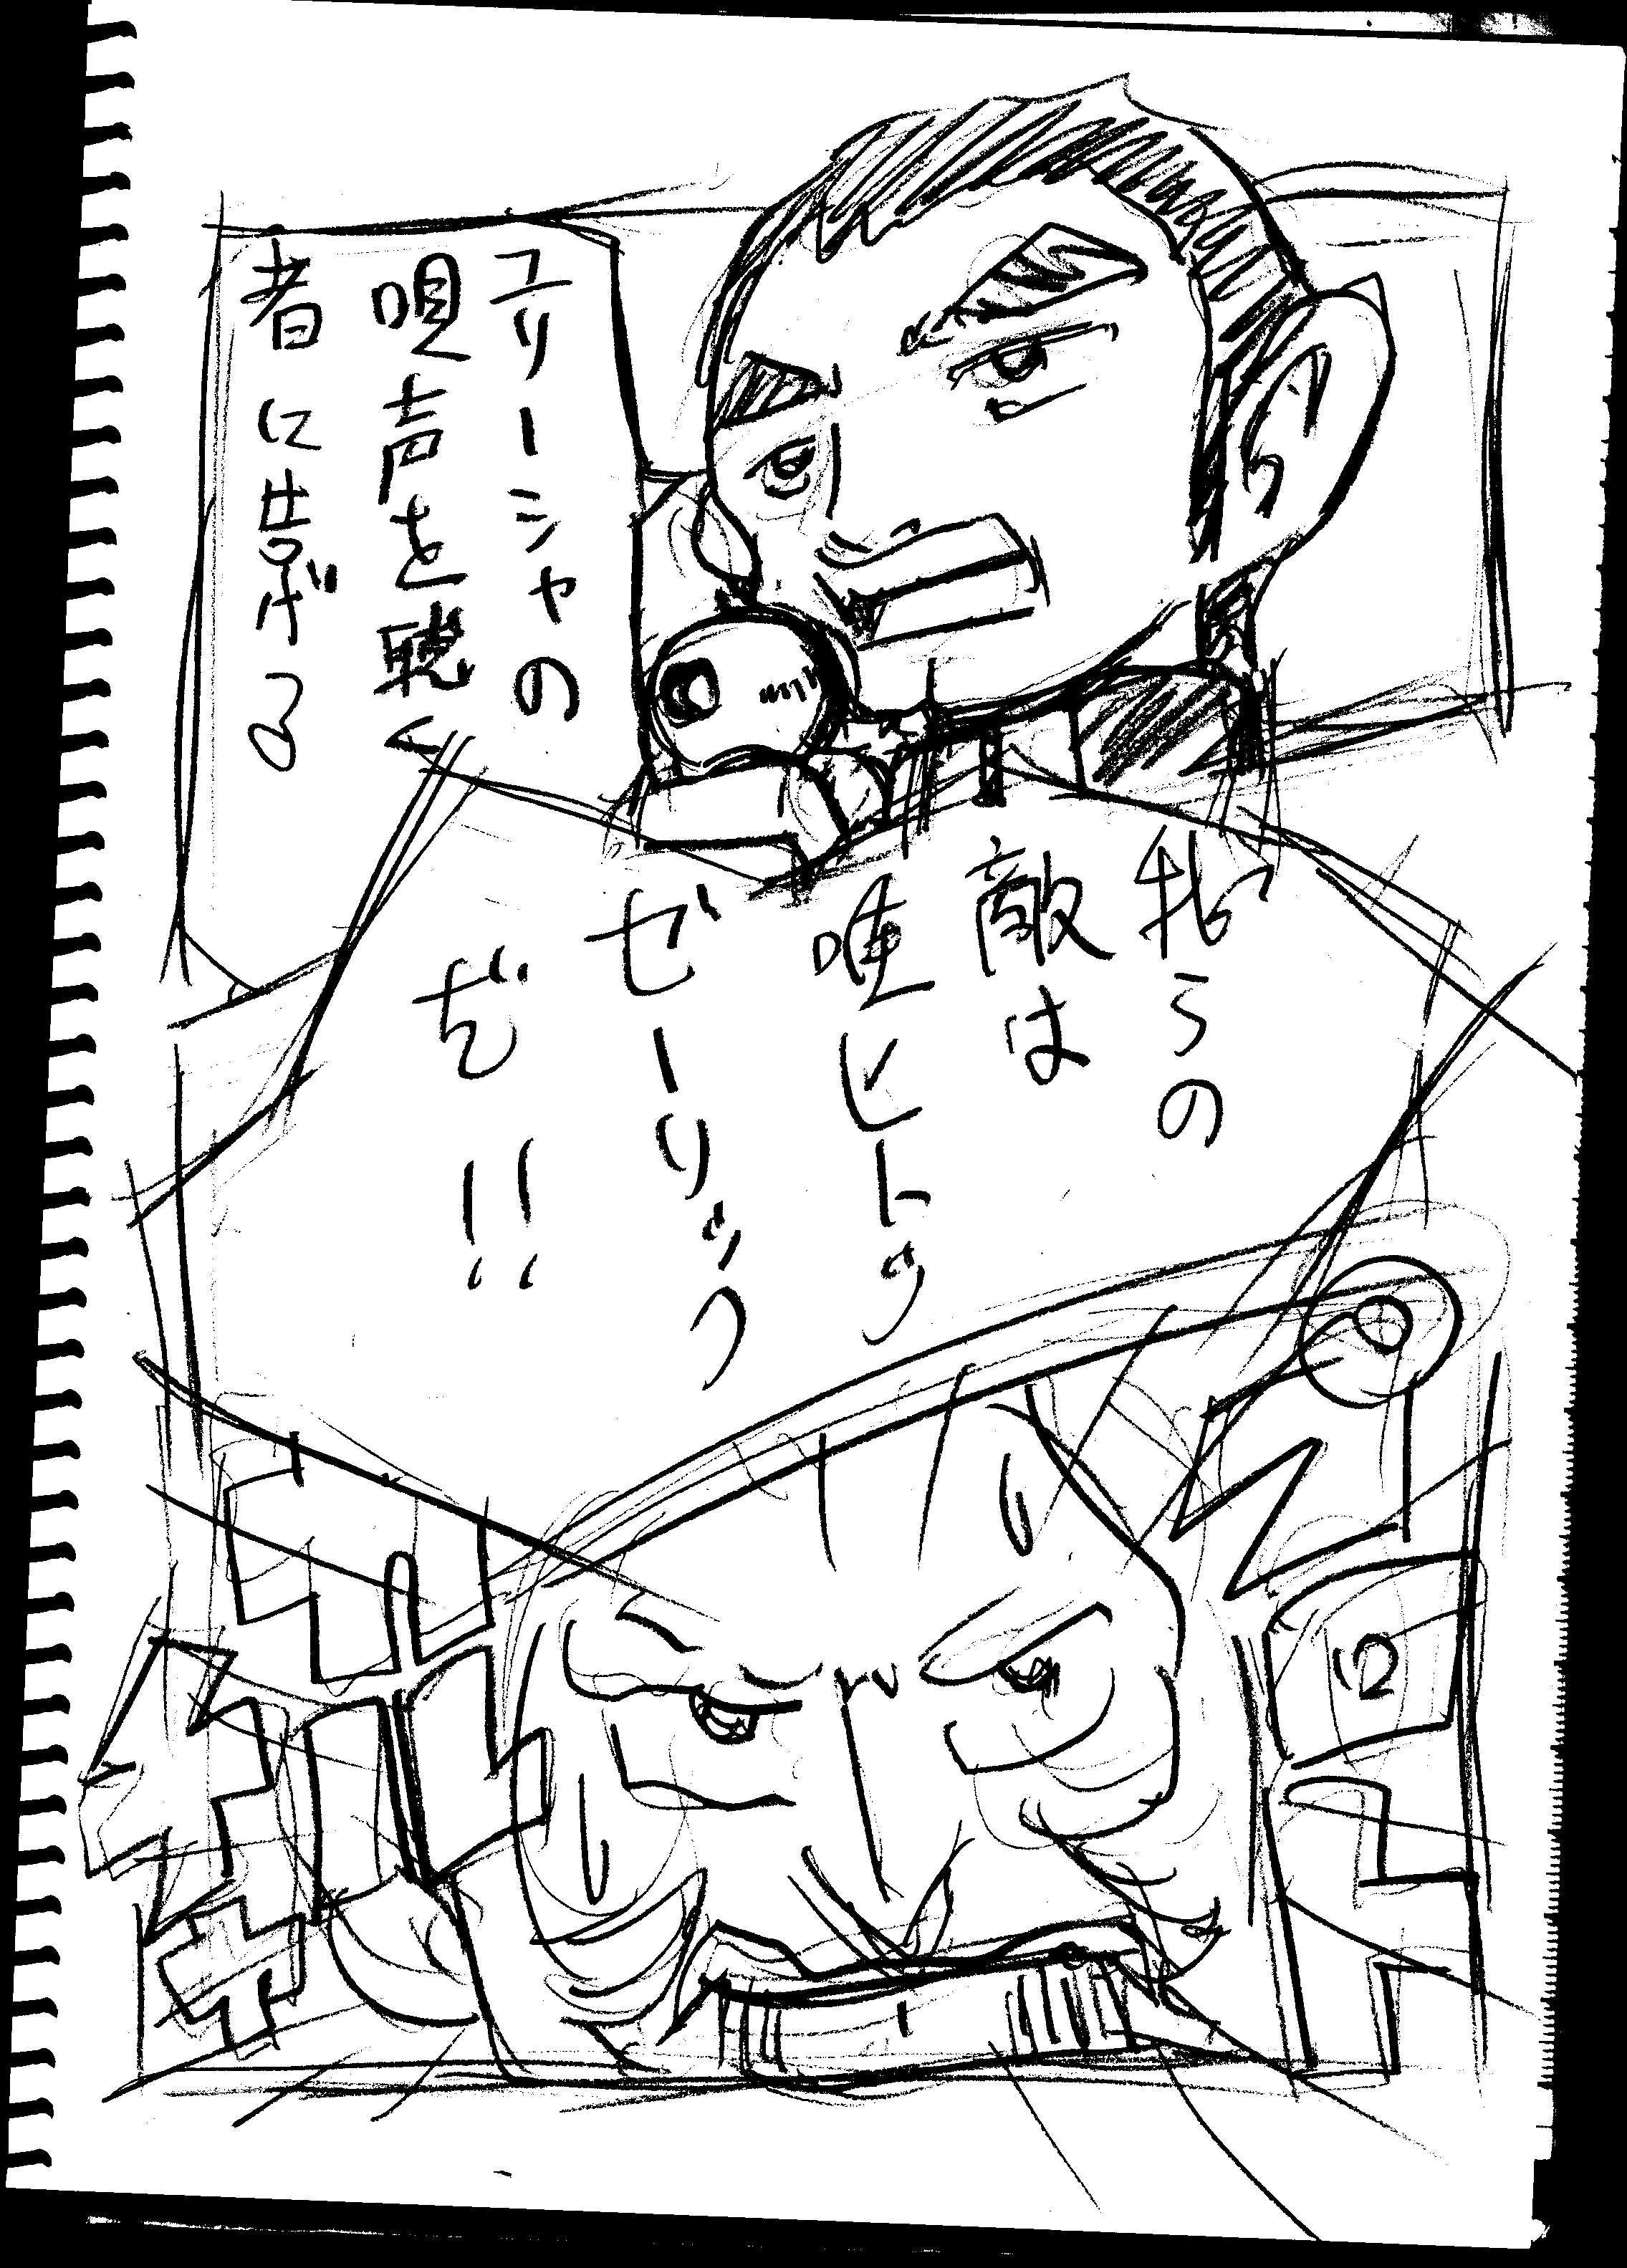 ユリーシャの
唄声を聴く
者に告げる
我らの
敵は
唯ヒトツ
ゼーリック
だ!!